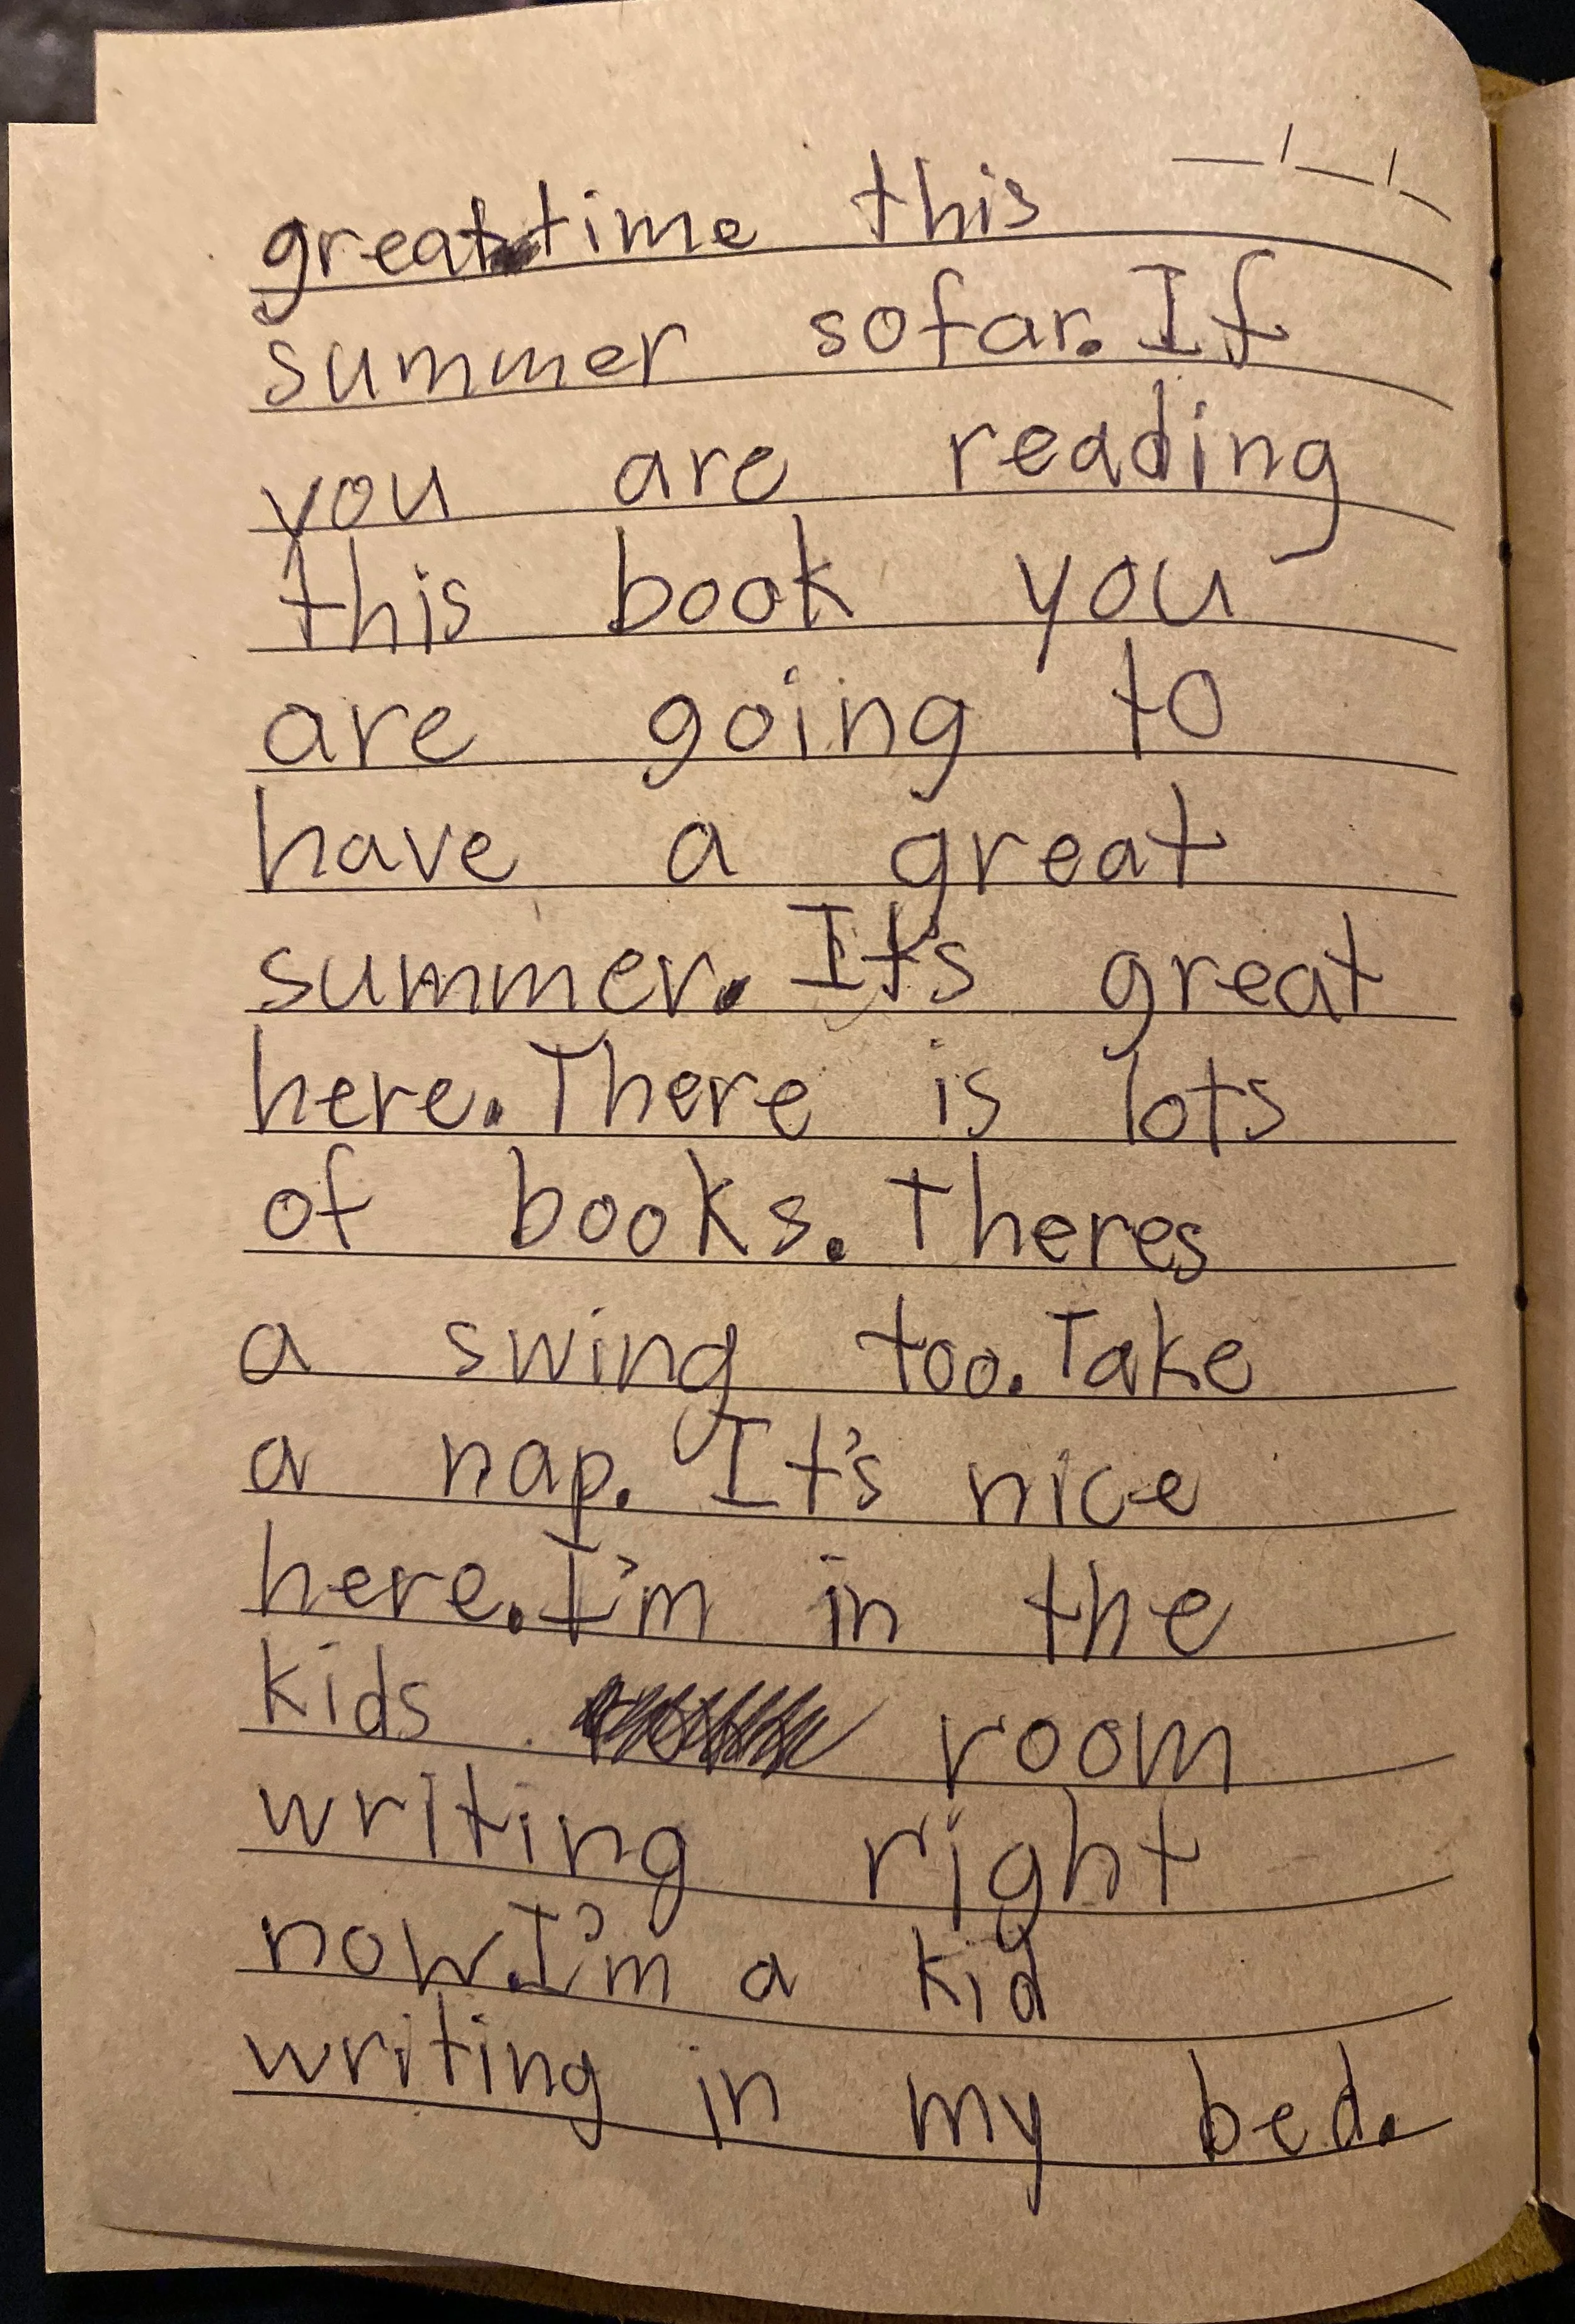 great time this
summer so far. If
you are reading
this book you
are going to
have a great
summer. It's great
here. There is lots
of books. Theres
a swing too. Take
a nap. It's nice
here. I'm in the
kids room
writing right
now. I'm a kid
writing in my bed.